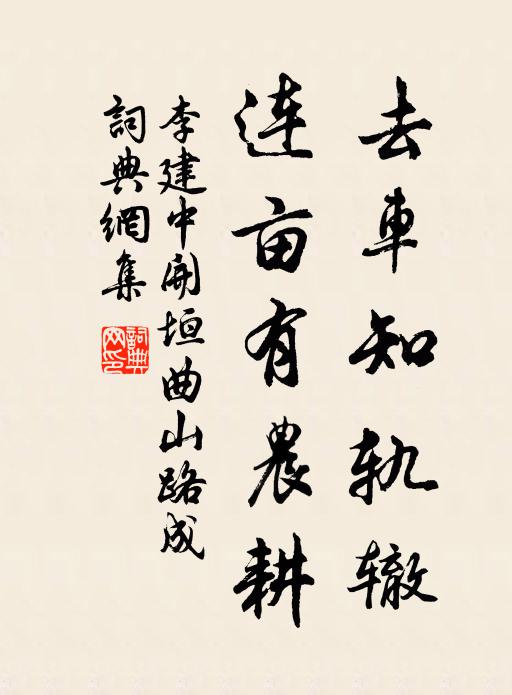 去車知轨辙
连亩有農耕
李建中開垣曲山路成
詞典網集
詞典網印